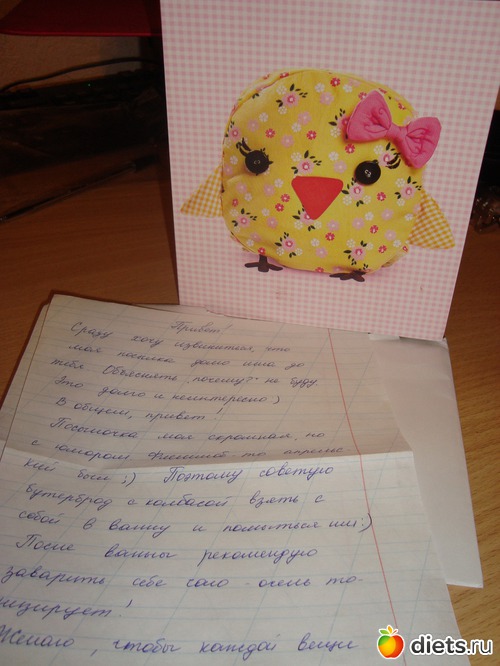 Привет!
Сразу хочу извиниться, что
моя посылка долго шла до
тебя. Объяснять, почему? не буду.
Это долго и неинтересно)
В общем, привет!
Посылочка моя скромная, но
с юмором
кий были ;) Поэтому советую
бутерброд с колбасой взять с
собой в ванну и помыться им :)
После ванны рекомендую
заварить себе сало - очень то-
низирует!
Желаю, чтобы каждой вещи
diets.ru